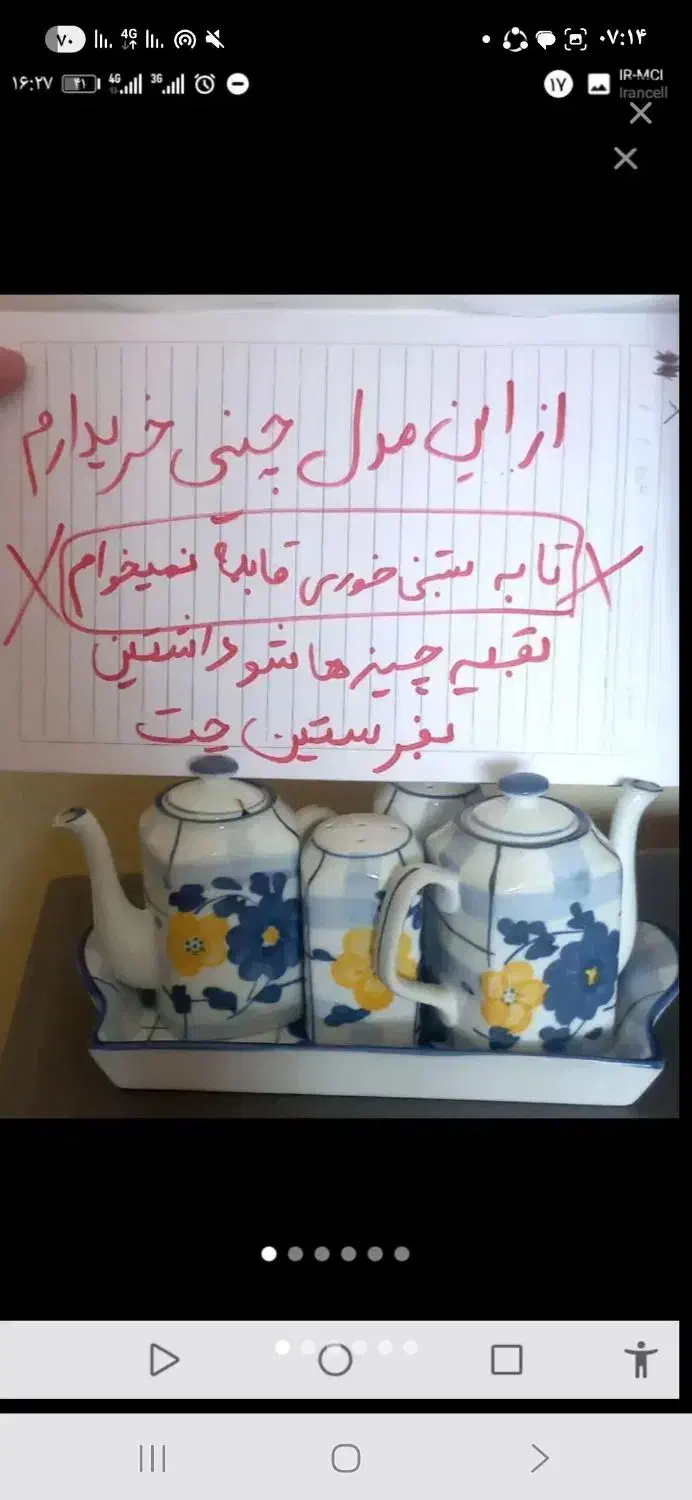 ۷۰ 4G ۰۷:۱۴
۱۶:۲۷ ۴۱ 4G 3G ۱۷ IR-MCI
Irancell
از این مدل چینی خریدارم
تابه بستنی خوری قابلمه نمیخوام
بقیه چیزهاشو داشتین
بفرستین چت